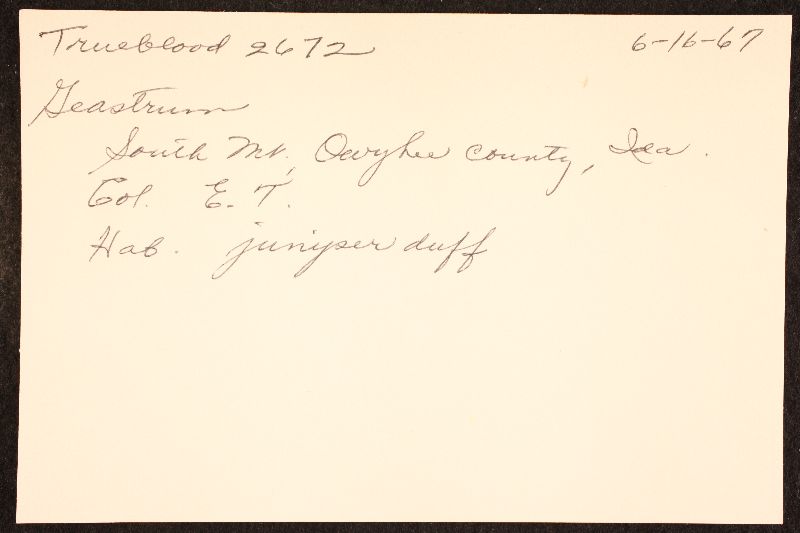 Trueblood 2672 6-16-67
Geastrum
South Mt., Owyhee county, Ida.
Col. E. T.
Hab. juniper duff